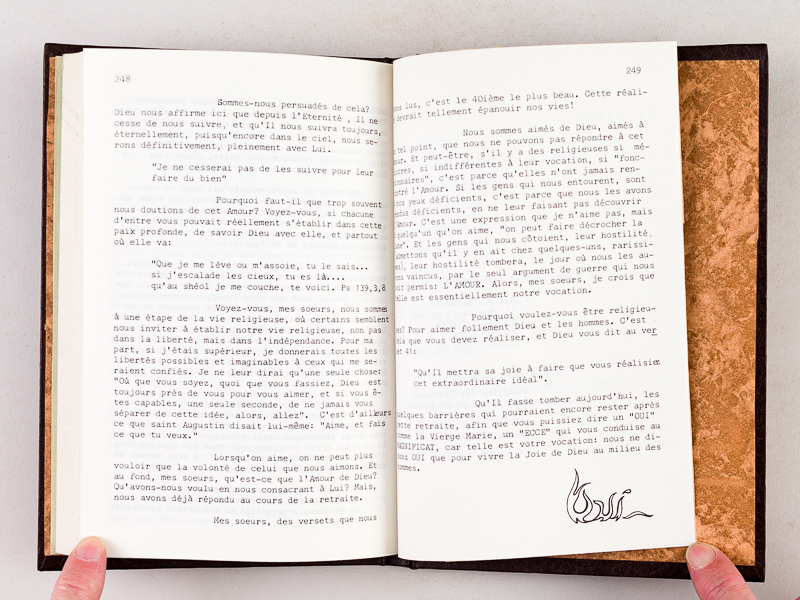 248
Sommes-nous persuadés de cela?
Dieu nous affirme ici que depuis l'Eternité , Il ne
cesse de nous suivre, et qu'Il nous suivra toujours,
éternellement, puisqu'encore dans le ciel, nous se-
rons définitivement, pleinement avec Lui.
"Je ne cesserai pas de les suivre pour leur
faire du bien"
Pourquoi faut-il que trop souvent
nous doutions de cet Amour? Voyez-vous, si chacune
d'entre vous pouvait réellement s'établir dans cette
paix profonde, de savoir Dieu avec elle, et partout
où elle va:
"Que je me lève ou m'assoie, tu le sais...
si j'escalade les cieux, tu es là....
qu'au shéol je me couche, te voici. Ps 139,3,8
Voyez-vous, mes soeurs, nous sommes
à une étape de la vie religieuse, où certains semblent
nous inviter à établir notre vie religieuse, non pas
dans la liberté, mais dans l'indépendance. Pour ma
part, si j'étais supérieur, je donnerais toutes les
libertés possibles et imaginables à ceux qui me se-
raient confiés. Je ne leur dirai qu'une seule chose:
"Où que vous soyez, quoi que vous fassiez, Dieu est
toujours près de vous pour vous aimer, et si vous ê-
tes capables, une seule seconde, de ne jamais vous
séparer de cette idée, alors, allez". C'est d'ailleurs
ce que saint Augustin disait lui-même: "Aime, et fais
ce que tu veux."
Lorsqu'on aime, on ne peut plus
vouloir que la volonté de celui que nous aimons. Et
au fond, mes soeurs, qu'est-ce que l'Amour de Dieu?
Qu'avons-nous voulu en nous consacrant à Lui? Mais,
nous avons déjà répondu au cours de la retraite.
Mes soeurs, des versets que nous
249
lus, c'est le 40ième le plus beau. Cette réali-
devrait tellement épanouir nos vies!
Nous sommes aimés de Dieu, aimés à
tel point, que nous ne pouvons pas répondre à cet
Et peut-être, s'il y a des religieuses si mé-
si indifférentes à leur vocation, si "fonc-
c'est parce qu'elles n'ont jamais ren-
l'Amour. Si les gens qui nous entourent, sont
yeux déficients, c'est parce que nous les avons
déficients, en ne leur faisant pas découvrir
C'est une expression que je n'aime pas, mais
quelqu'un qu'on aime, "on peut faire décrocher la
Et les gens qui nous côtoient, leur hostilité,
qu'il y en ait chez quelques-uns, rarissi-
leur hostilité tombera, le jour où nous les au-
vaincus, par le seul argument de guerre qui nous
permis: L'AMOUR. Alors, mes soeurs, je crois que
est essentiellement notre vocation.
Pourquoi voulez-vous être religieu-
Pour aimer follement Dieu et les hommes. C'est
que vous devez réaliser, et Dieu vous dit au ver
41:
"Qu'Il mettra sa joie à faire que vous réalisiez
cet extraordinaire idéal".
Qu'Il fasse tomber aujourd'hui, les
quelques barrières qui pourraient encore rester après
cette retraite, afin que vous puissiez dire un "OUI"
comme la Vierge Marie, un "ECCE" qui vous conduise au
MAGNIFICAT, car telle est votre vocation: nous ne di-
OUI que pour vivre la Joie de Dieu au milieu des
hommes.
Oui